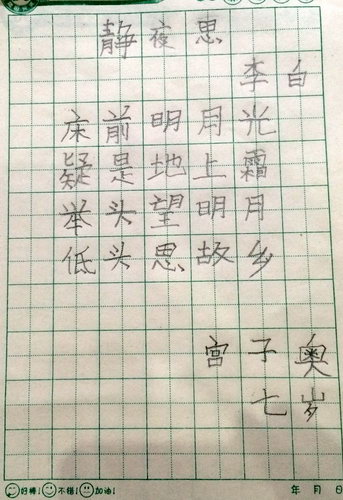 静夜思
李白
床前明月光
疑是地上霜
举头望明月
低头思故乡
宫子奥
七岁
好棒! 不错! 加油! 年 月 日